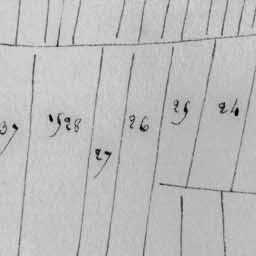 37 1928 27 26 25 24